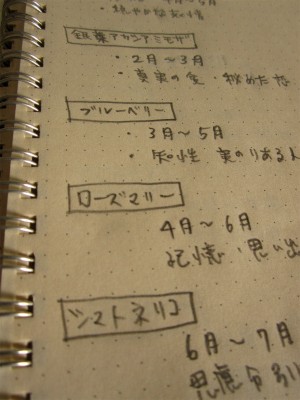 銀葉アカシアミモザ
・2月〜3月
・真実の愛 秘めた
ブルーベリー
・3月〜5月
・知性 実のりある人
ローズマリー
4月〜6月
記憶・思い出
シマトネリコ
6月〜7月
思慮分別